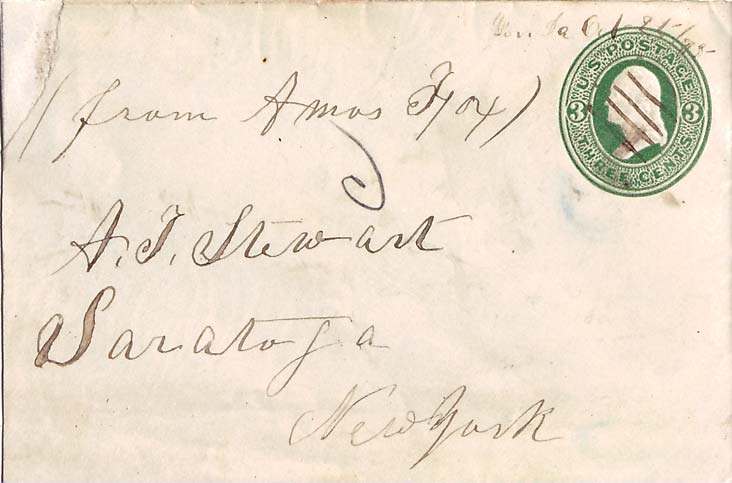 Oct 25/75
U.S. POSTAGE
3 3
THREE CENTS
(from Amos Fox)
A. T. Stewart
Saratoga
New York